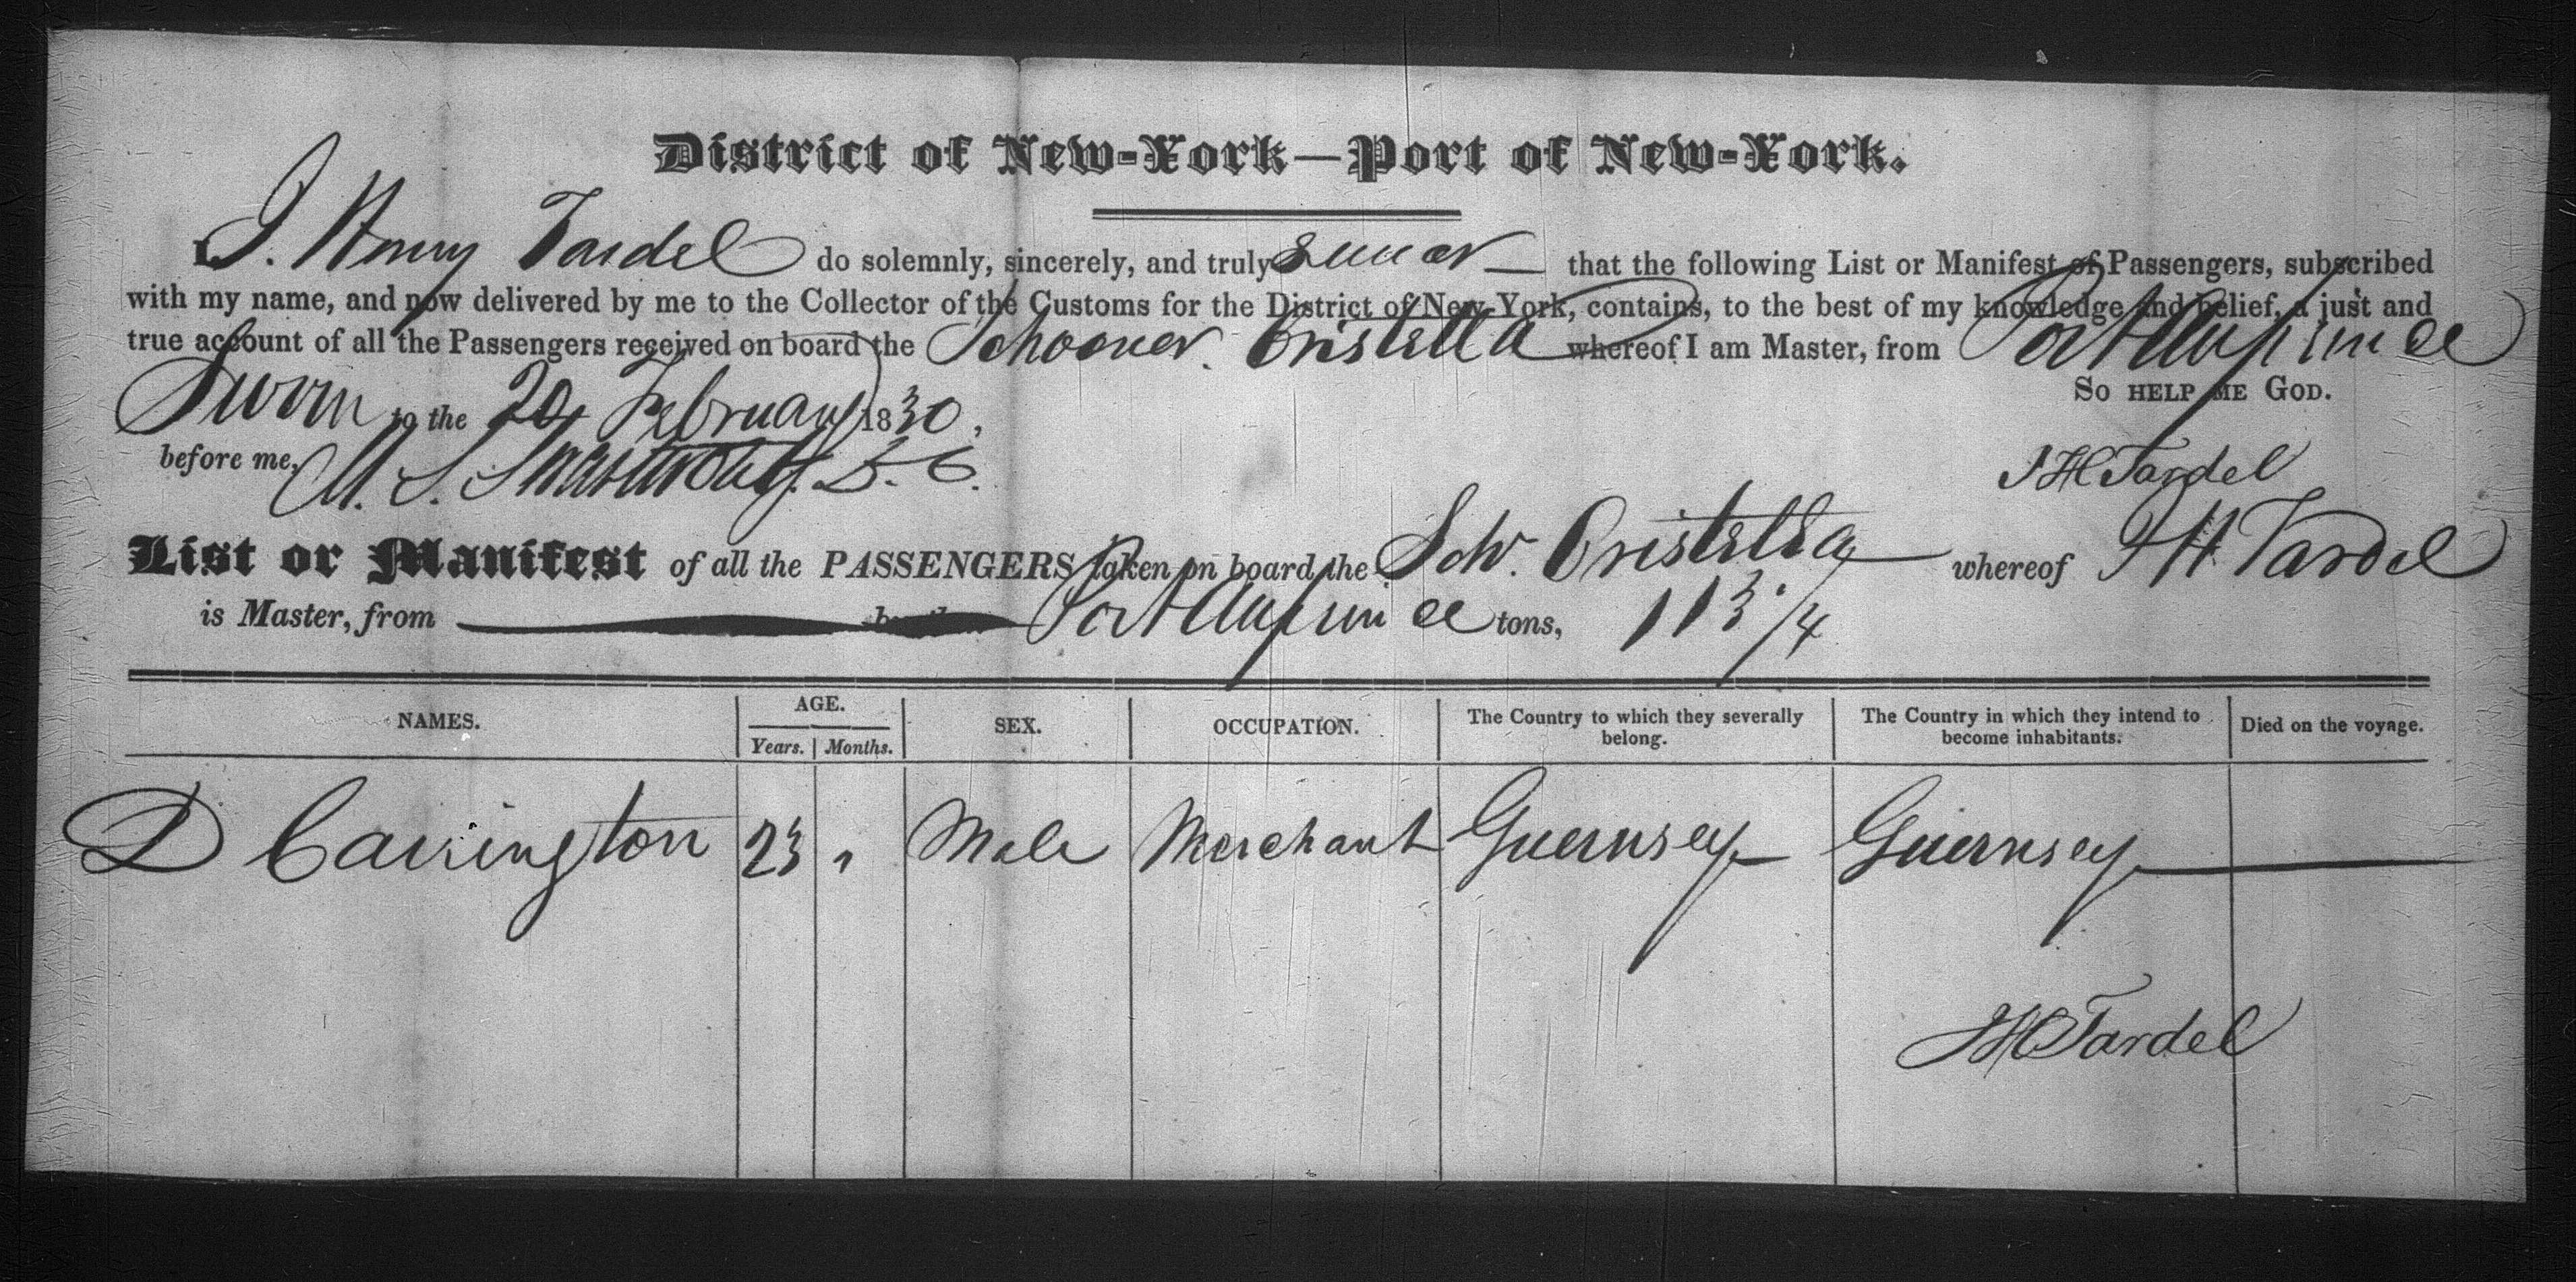 District of New-York—Port of New-York.
I, J. Henry Tardel do solemnly, sincerely, and truly swear that the following List or Manifest of Passengers, subscribed
with my name, and now delivered by me to the Collector of the Customs for the District of New-York, contains, to the best of my knowledge and belief, a just and
true account of all the Passengers received on board the Schooner Cristella whereof I am Master, from Port Auprince
Sworn to the 20 February 1830,
So help me God.
before me,
J H Tardel
List or Manifest of all the PASSENGERS taken on board the Schr. Cristella whereof J H Tardel
is Master, from Port Auprince tons, 113/4
NAMES. AGE. SEX. OCCUPATION. The Country to which they severally belong. The Country in which they intend to become inhabitants. Died on the voyage.
Years. Months.
D Carrington 23 " Male Merchant Guernsey Guernsey
J H Tardel